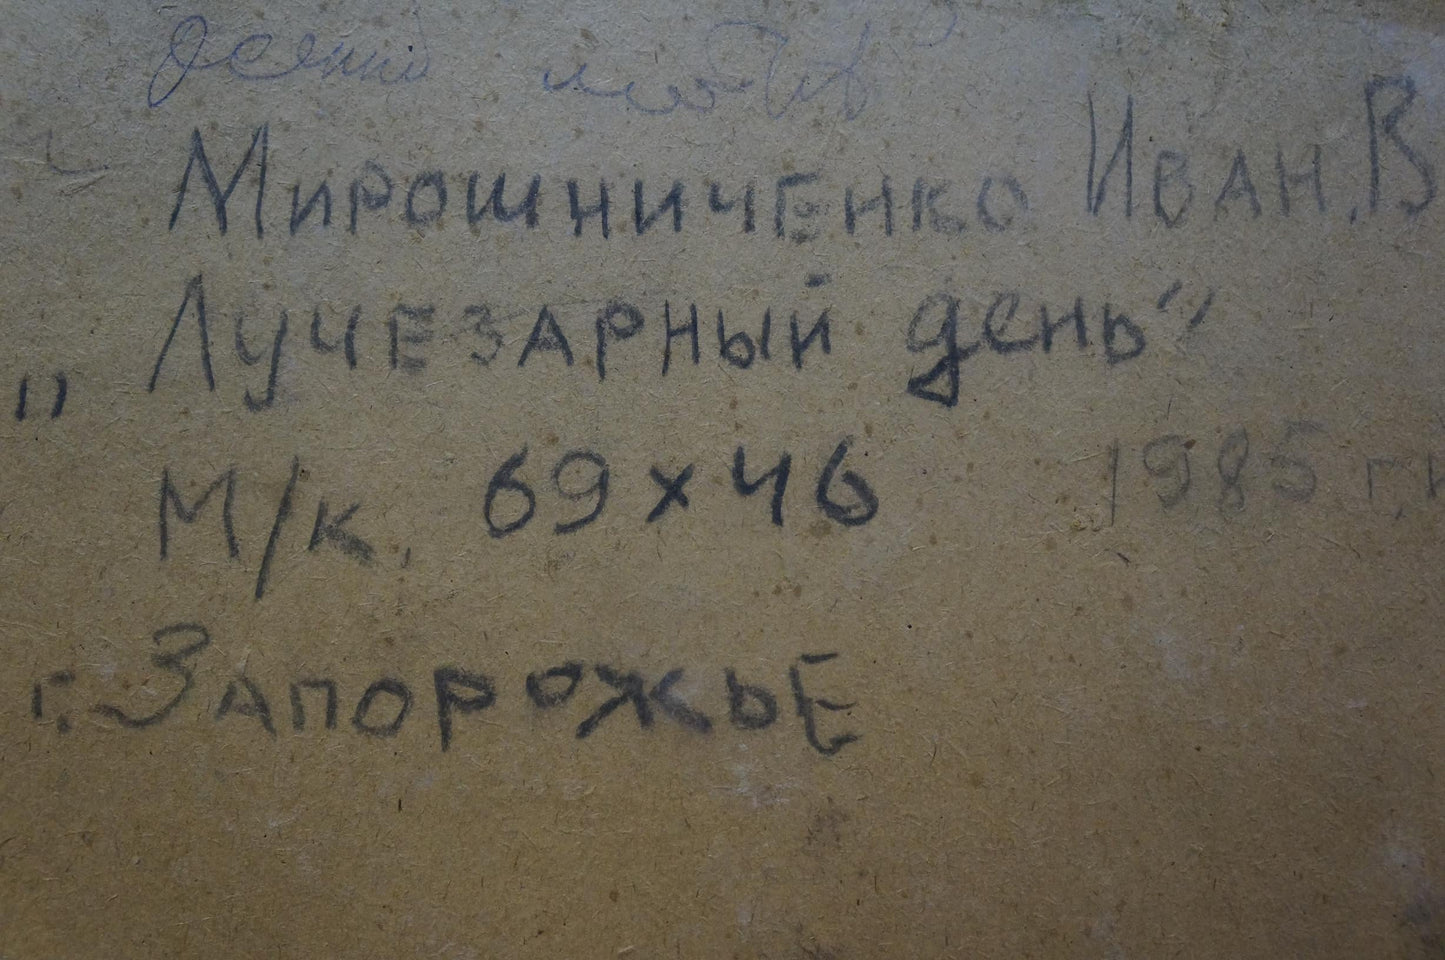 Мирошниченко Иван. В
„Лучезарный день"
М/к. 69 х 46 1985 г.
г. Запорожье